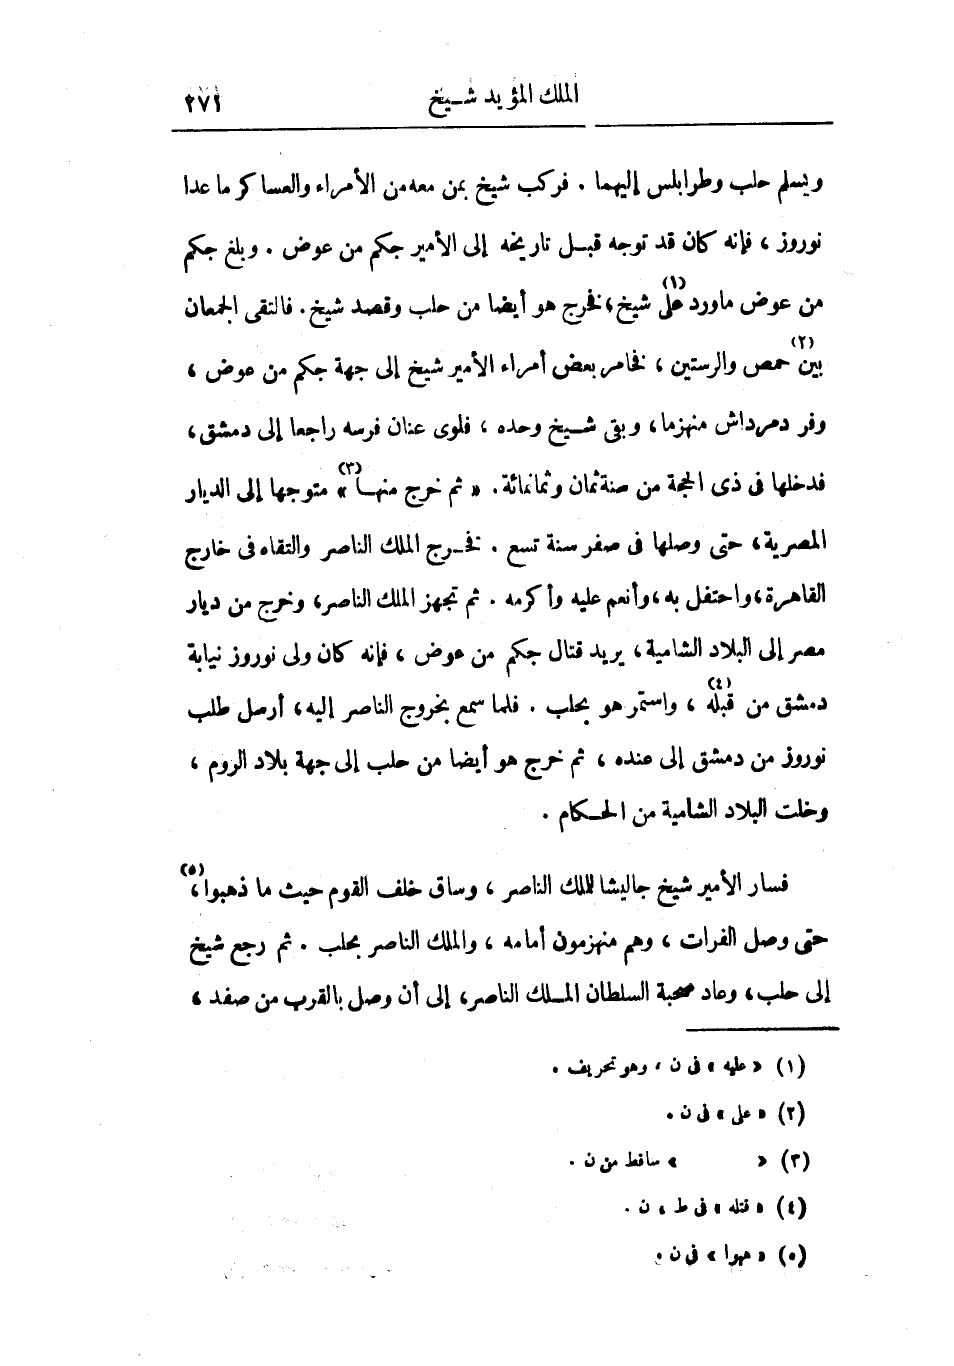 الملك المؤيد شيخ ٢٧١
ويسلم حلب وطرابلس إليهما . فركب شيخ بمن معه من الأمراء والعساكر ما عدا
نوروز ، فإنه كان قد توجه قبل تاريخه إلى الأمير جكم من عوض . وبلغ جكم
من عوض ماورد على (١) شيخ ، فخرج هو أيضا من حلب وقصد شيخ . فالتقى الجمعان
بين (٢) حمص والرستين ، فخامر بعض أمراء الأمير شيخ إلى جهة جكم من عوض ،
وفر دمرداش منهزما ، وبقى شيخ وحده ، فلوى عنان فرسه راجعا إلى دمشق ،
فدخلها فى ذى الحجة من سنة ثمان وثمانمائة . « ثم خرج منها » (٣) متوجها إلى الديار
المصرية ، حتى وصلها فى صفر سنة تسع . فخرج الملك الناصر والتقاه فى خارج
القاهرة ، واحتفل به ، وأنعم عليه وأكرمه . ثم تجهز الملك الناصر ، وخرج من ديار
مصر إلى البلاد الشامية ، يريد قتال جكم من عوض ، فإنه كان ولى نوروز نيابة
دمشق من قبله (٤) ، واستمر هو بحلب . فلما سمع بخروج الناصر إليه ، أرسل طلب
نوروز من دمشق إلى عنده ، ثم خرج هو أيضا من حلب إلى جهة بلاد الروم ،
وخلت البلاد الشامية من الحكام .
فسار الأمير شيخ جاليشا للملك الناصر ، وساق خلف القوم حيث ما ذهبوا (٥) ،
حتى وصل الفرات ، وهم منهزمون أمامه ، والملك الناصر بحلب . ثم رجع شيخ
إلى حلب ، وعاد صحبة السلطان الملك الناصر ، إلى أن وصل بالقرب من صفد ،
(١) « عليه » فى ن ، وهو تحريف .
(٢) « على » فى ن .
(٣) « » ساقط من ن .
(٤) « قتله » فى ط ، ن .
(٥) « هبوا » فى ن .